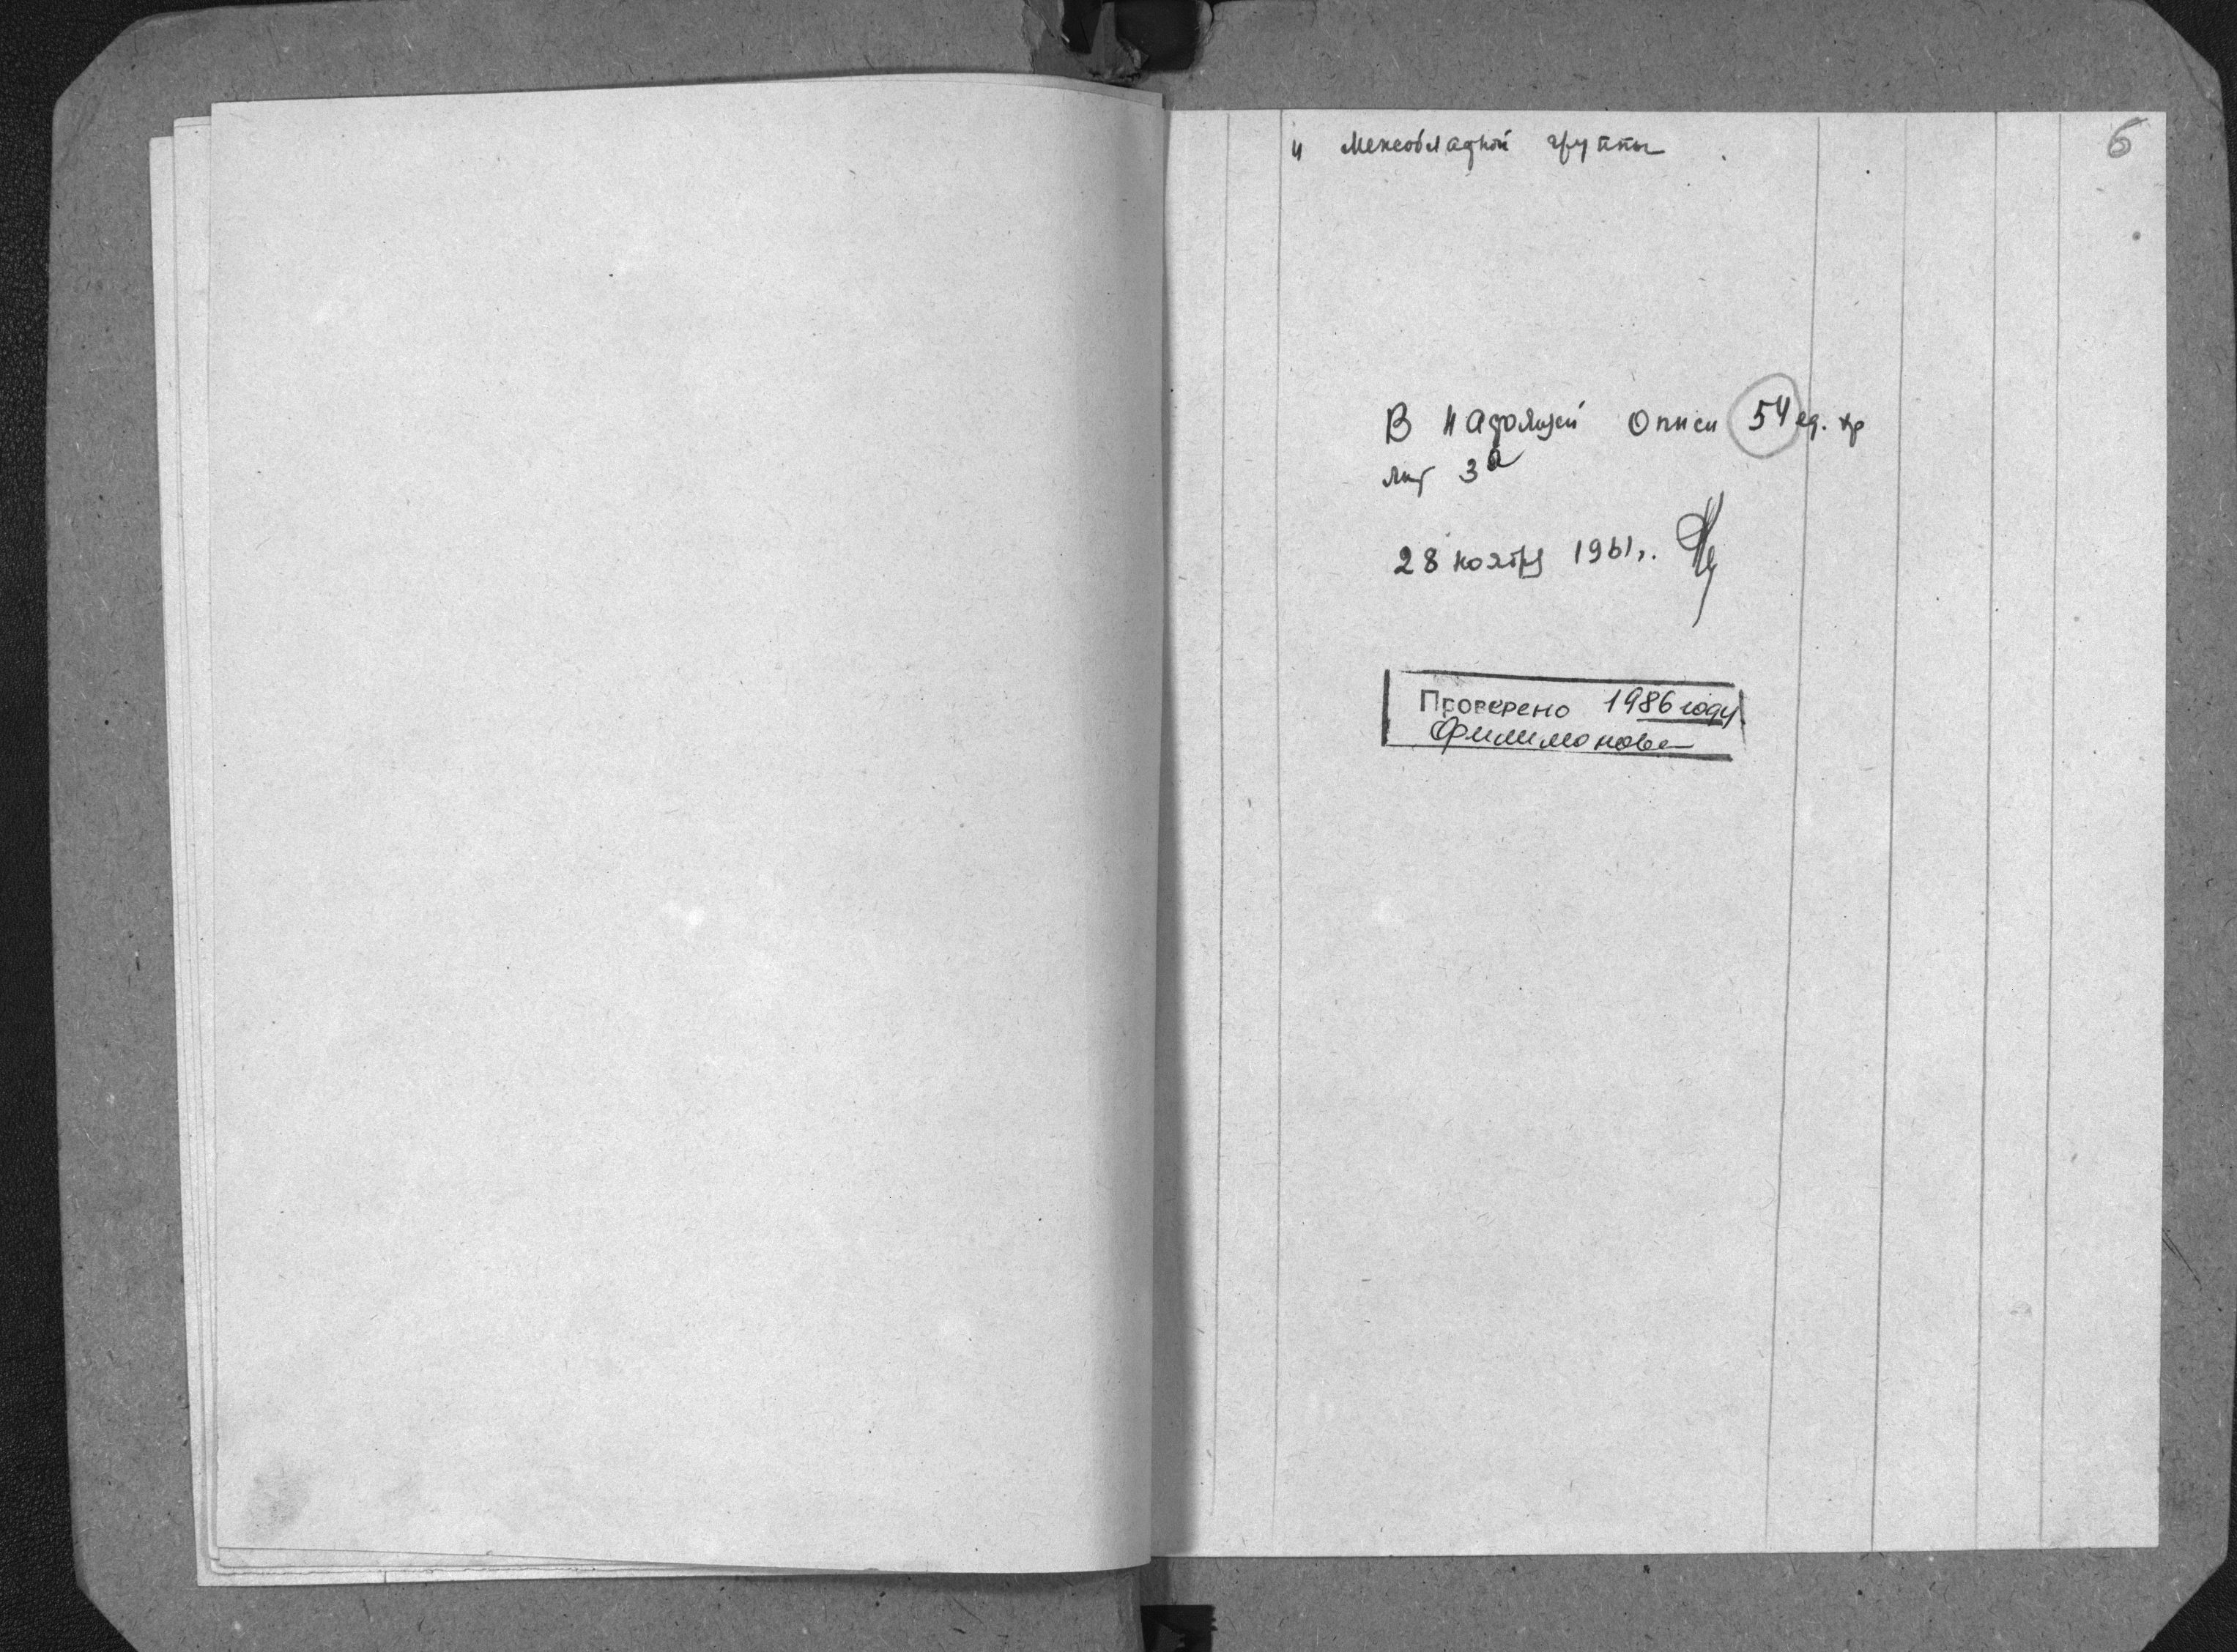 6
и межобластной группы
В настоящей описи 54 ед. хр
лит 3а
28 ноября 1961г.
Проверено 1986 году
Филимонова